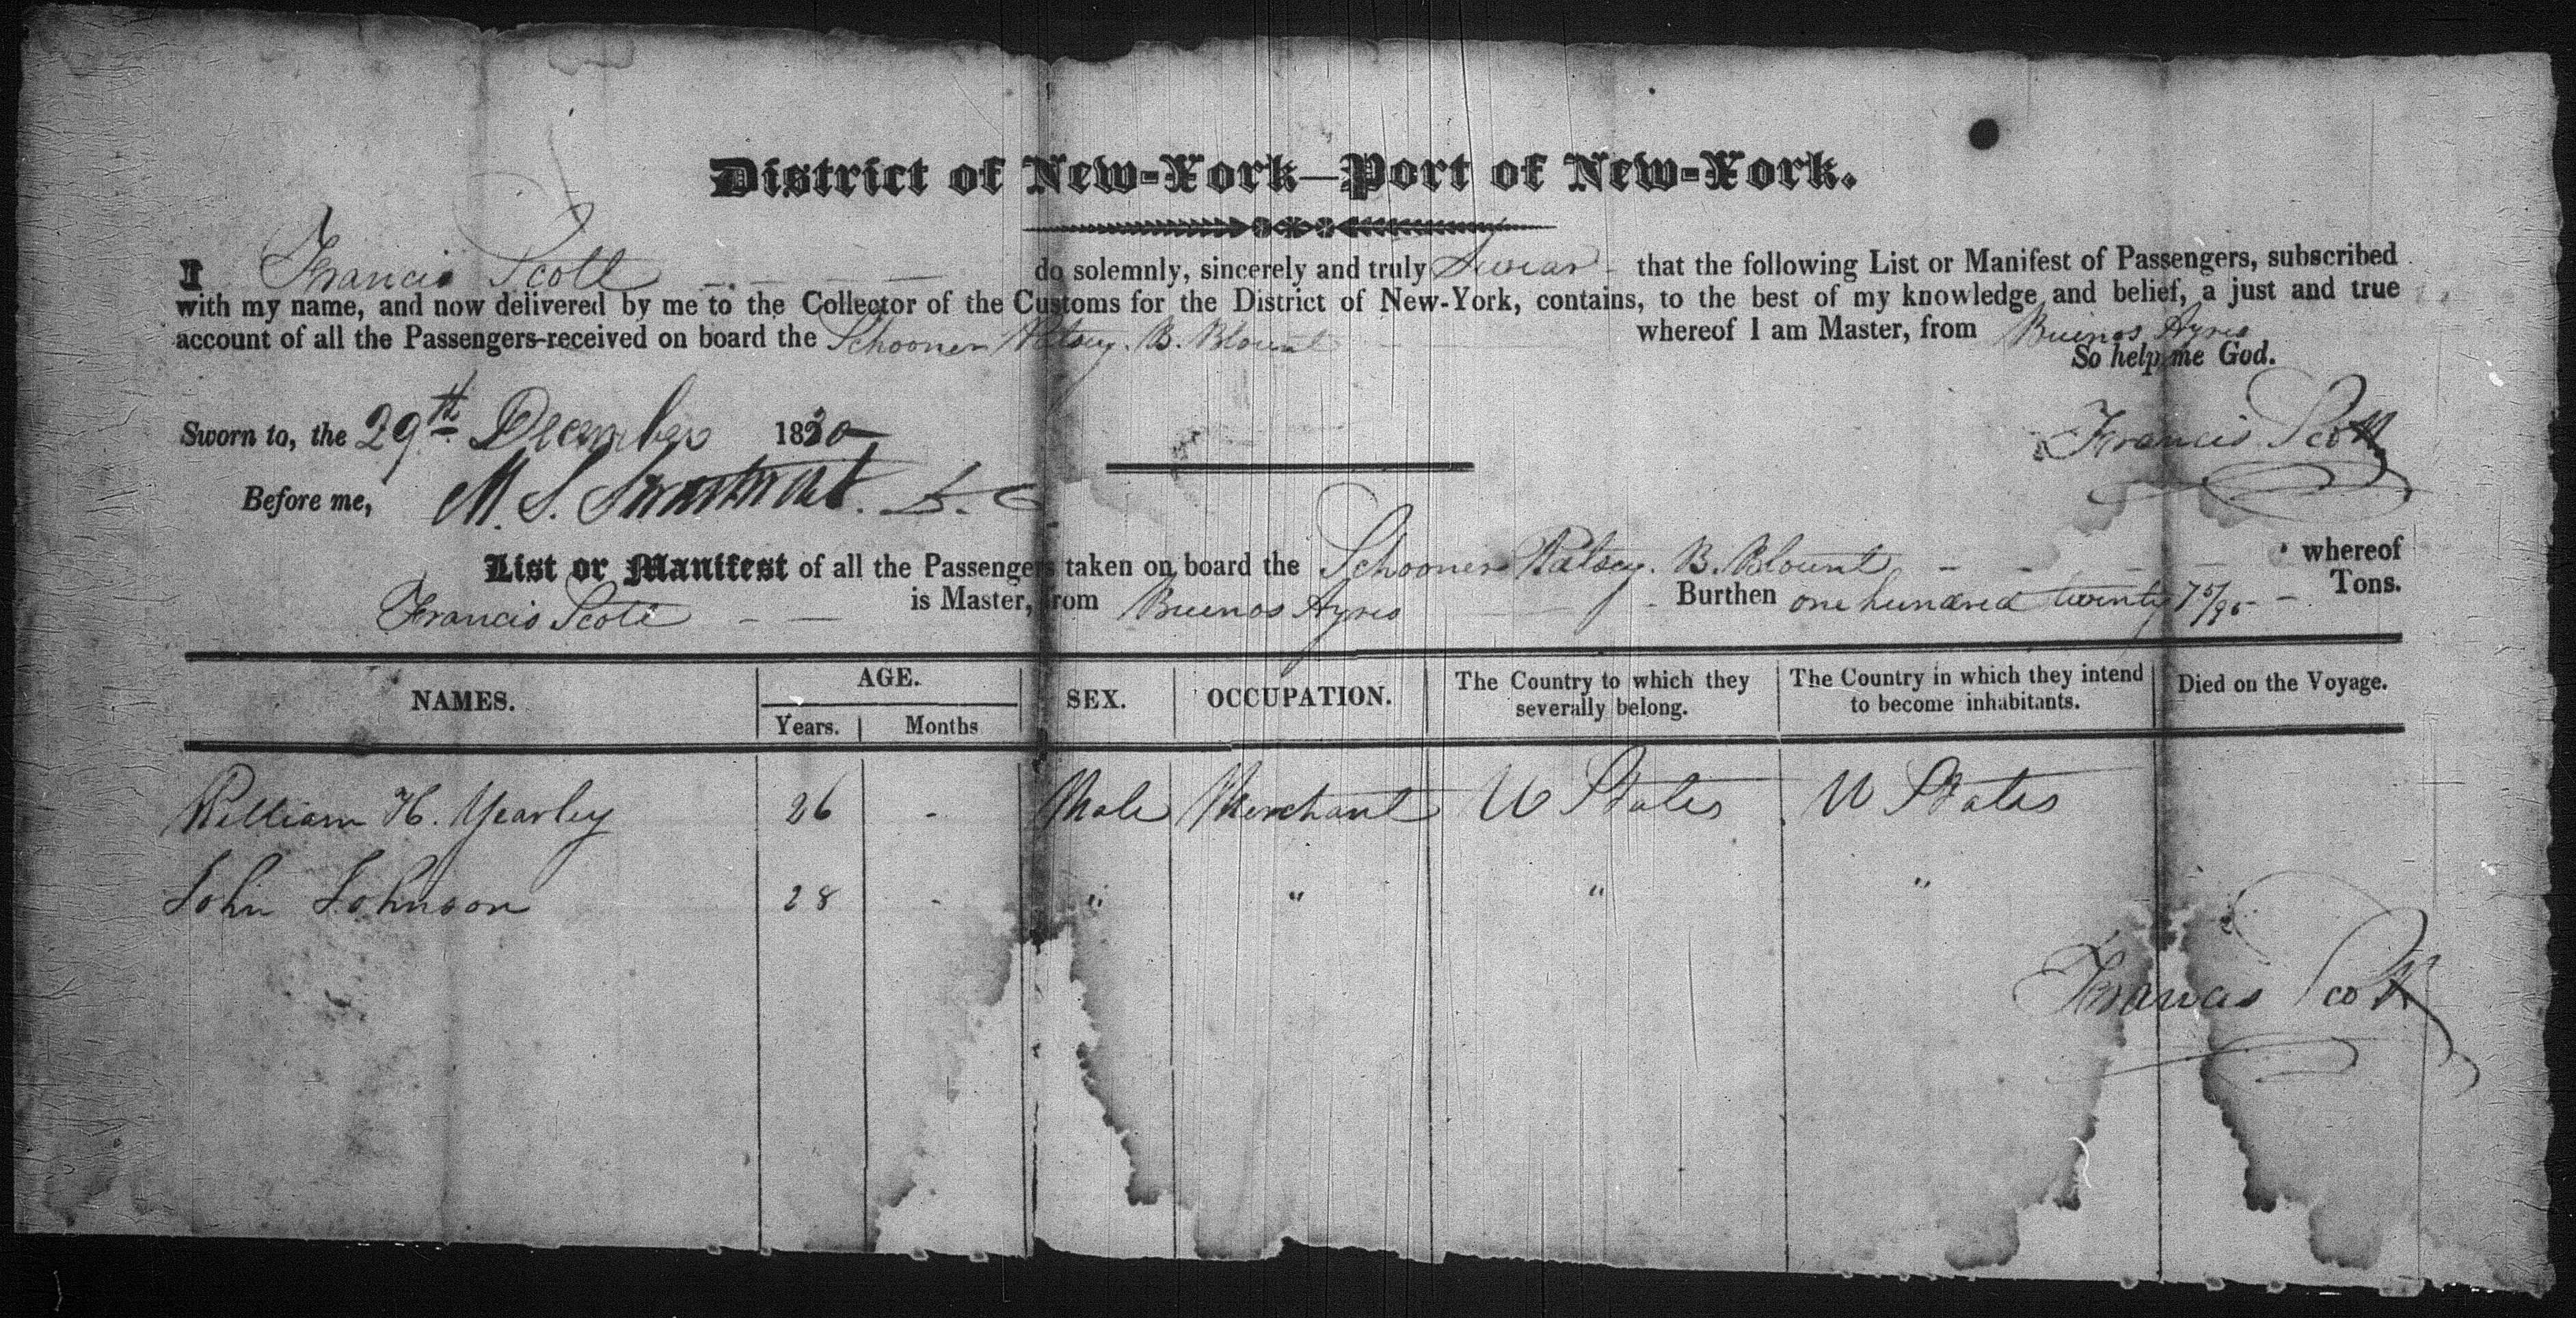 District of New-York—Port of New-York.
I Francis Scott do solemnly, sincerely and truly Swear that the following List or Manifest of Passengers, subscribed
with my name, and now delivered by me to the Collector of the Customs for the District of New-York, contains, to the best of my knowledge and belief, a just and true
account of all the Passengers received on board the Schooner Patsey. B. Blount whereof I am Master, from Buenos Ayres
So help me God.
Sworn to, the 29th December 1830 Francis Scott
Before me, M. S. Swartwout. D. C
List or Manifest of all the Passengers taken on board the Schooner Patsey. B. Blount whereof
Francis Scott is Master, from Buenos Ayres Burthen one hundred twenty 75/95 Tons.
NAMES. AGE. SEX. OCCUPATION. The Country to which they severally belong. The Country in which they intend to become inhabitants. Died on the Voyage.
Years. Months
William H. Yearley 26 - Male Merchant U States U States
John Johnson 28 - " " " "
Francis Scott